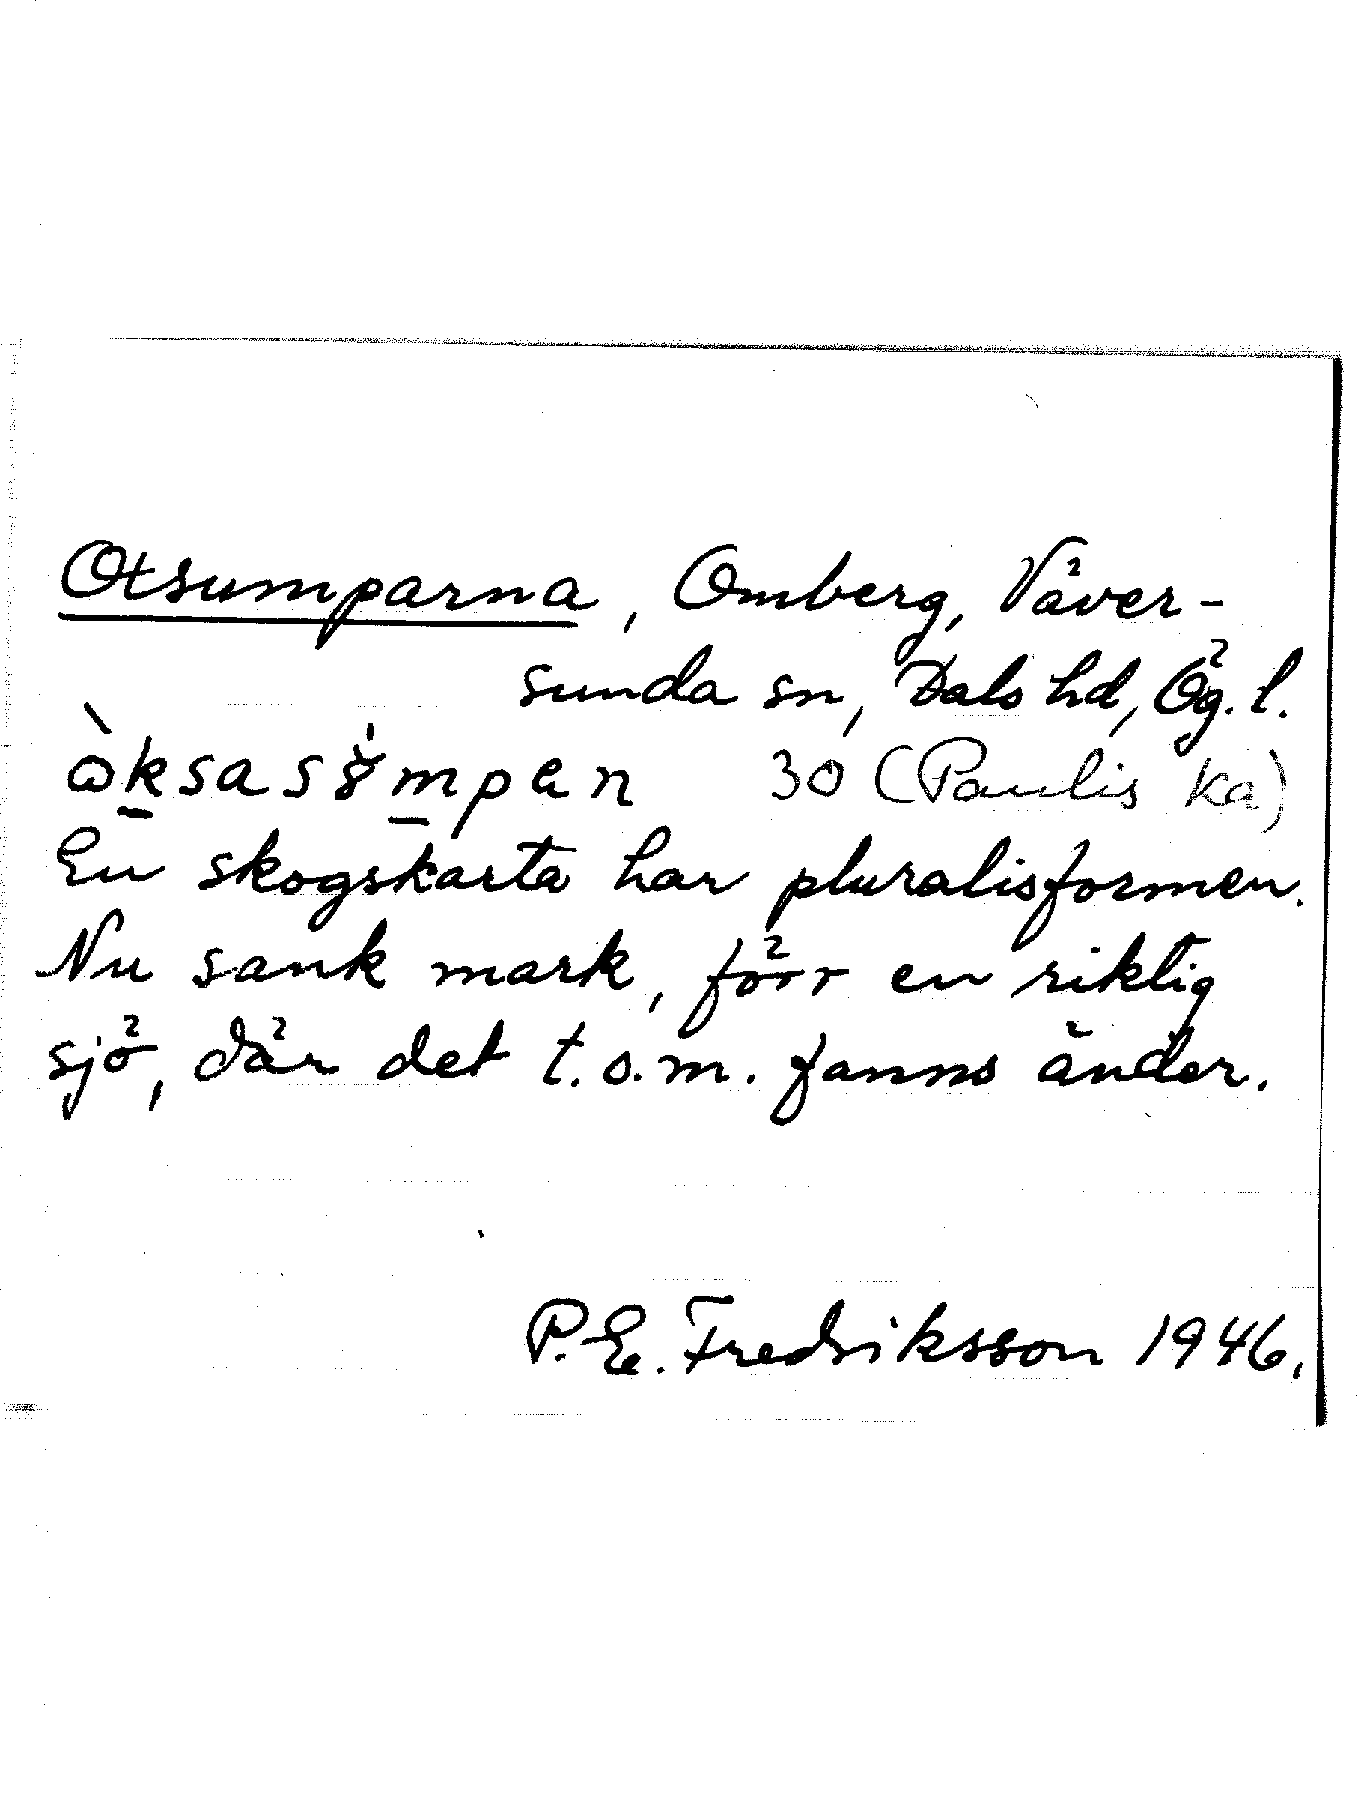 Otsumparna, Omberg, Väver-
sunda sn, Dals hd, Ög. l.
ὼksasɤ̀mpen 30 (Paulis ka)
En skogskarta har pluralisformen.
Nu sank mark, förr en riktig
sjö, där det t.o.m. fanns änder.
P. E. Fredriksson 1946.